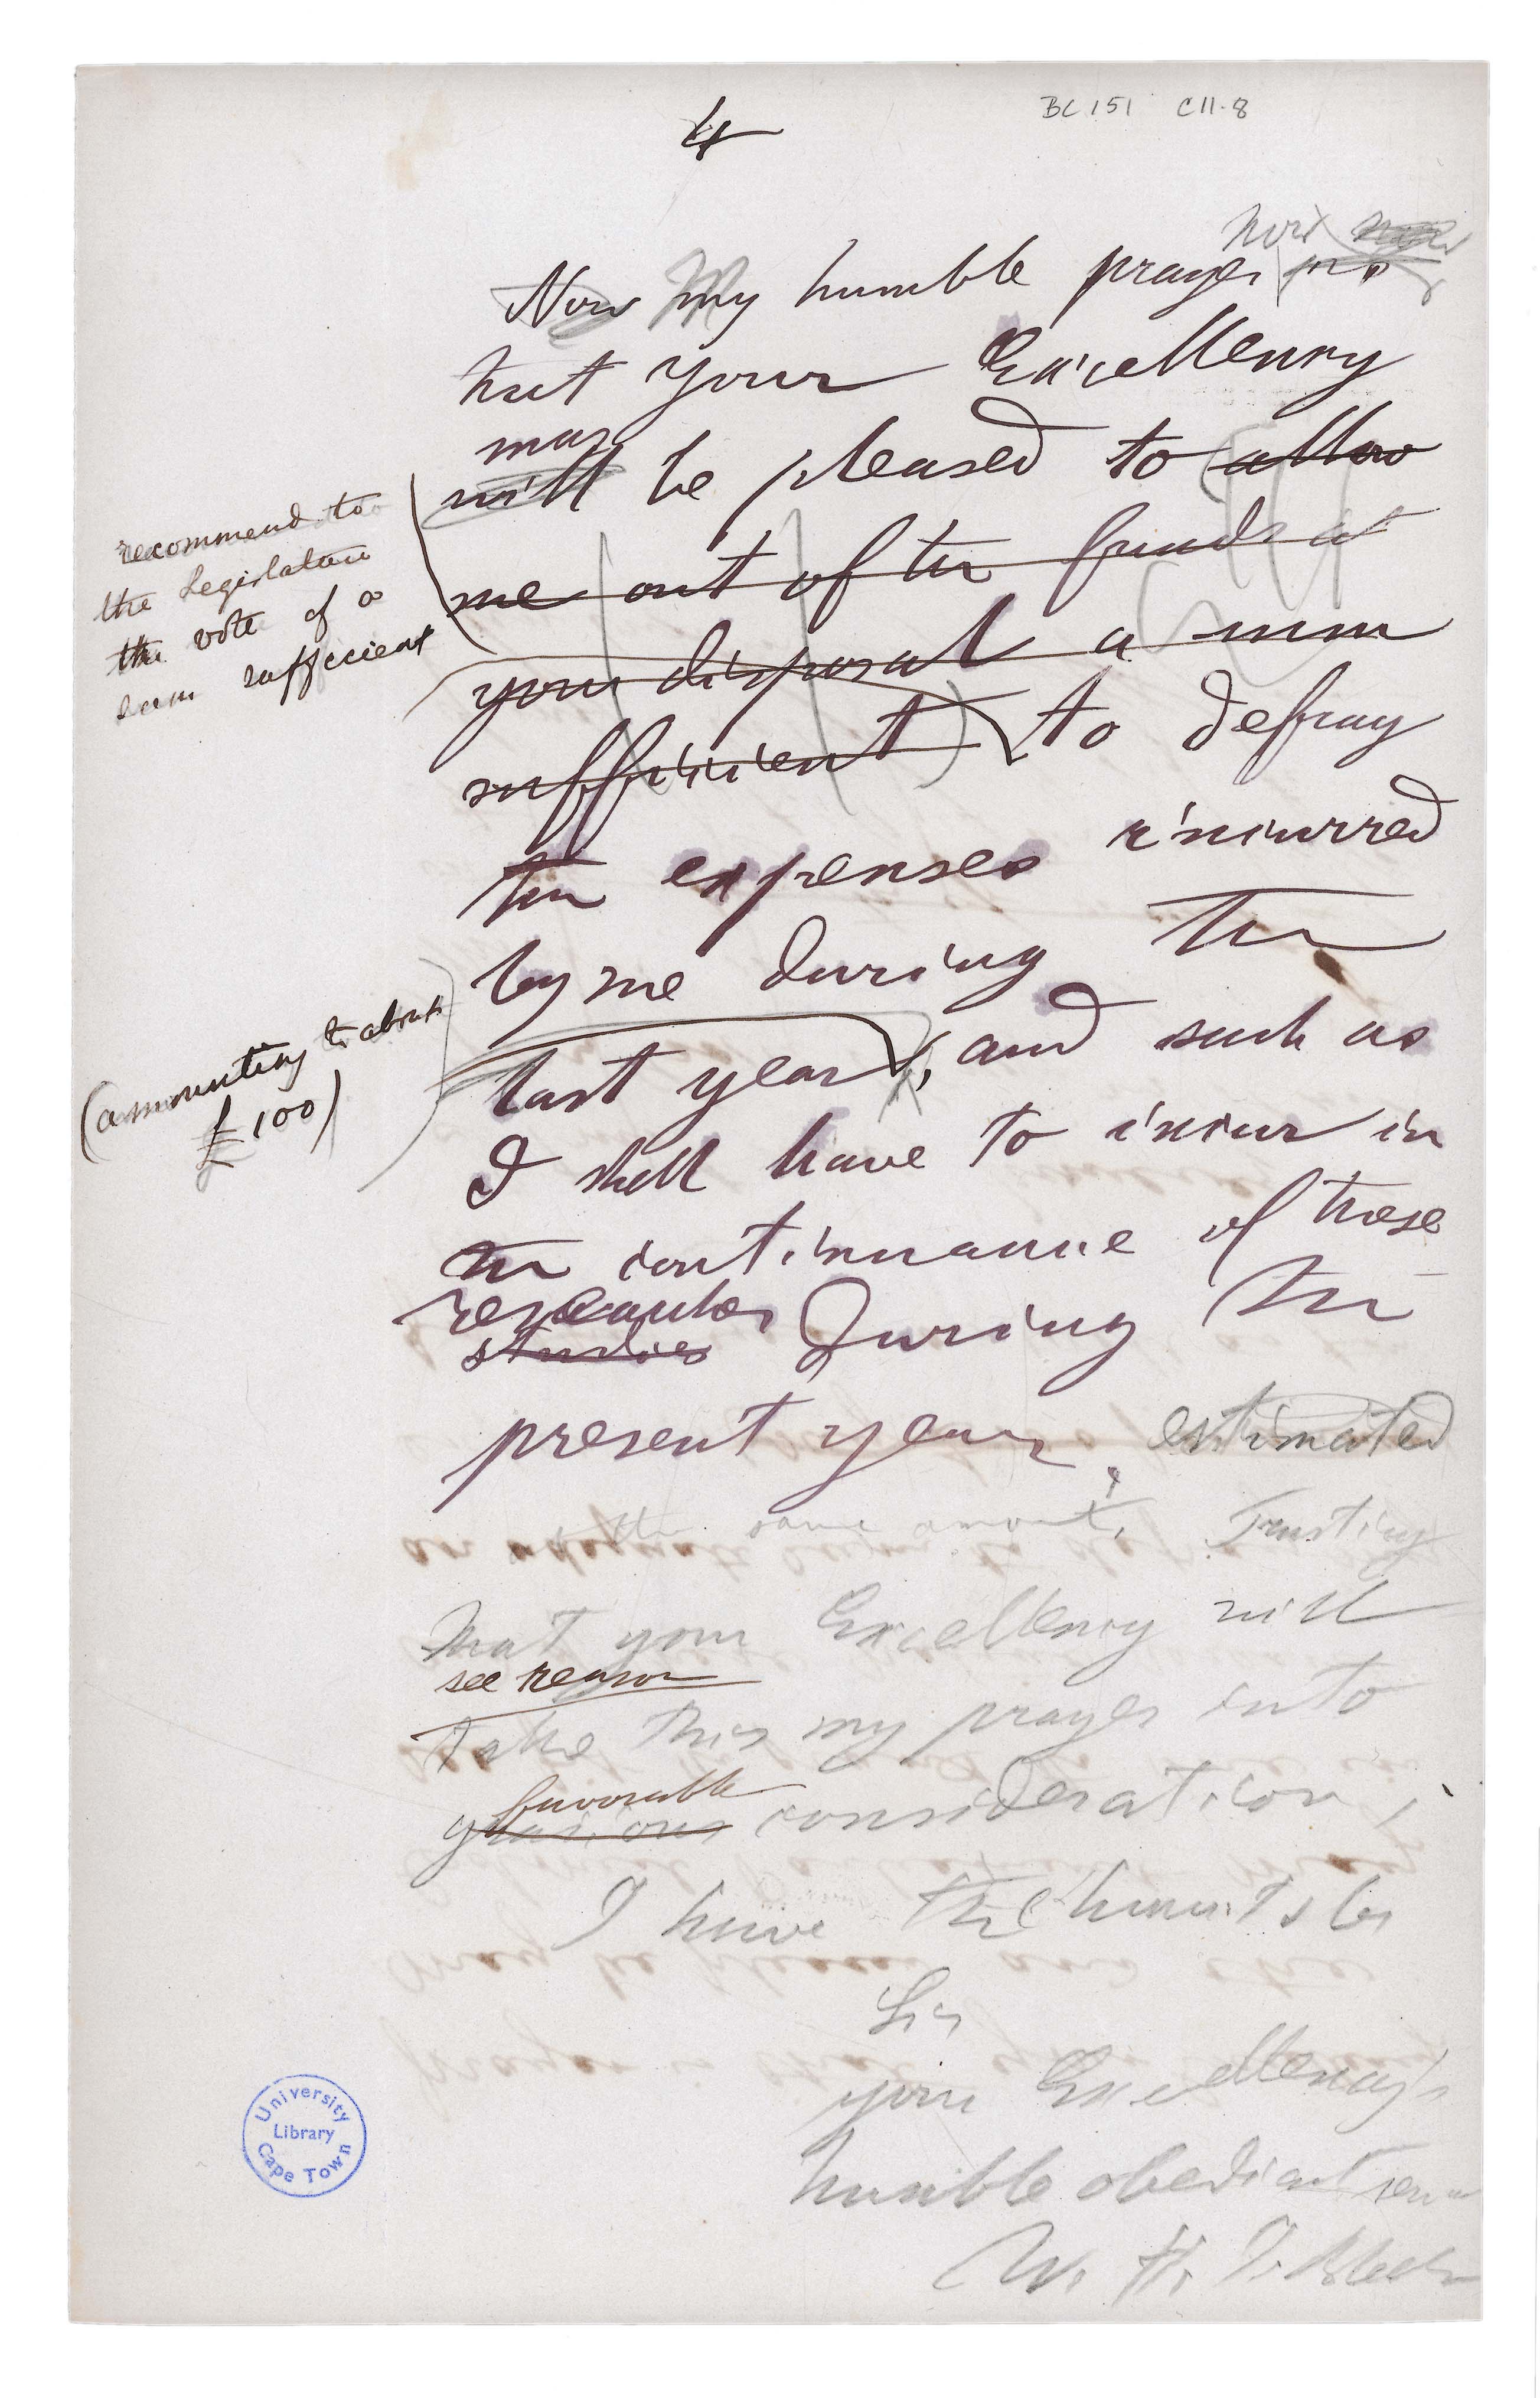 BC 151 C11.8
4
now
Now My humble prayer is
that your Excellency
may
will be pleased to allow
me out of the funds at
your disposal a sum
sufficient to defray
recommend to
the Legislature
the vote of a
sum sufficient
the expenses incurred
by me during the
last year, and such as
(amounting to about
£100)
I shall have to incur in
the continuance of these
researches
studies during the
present year, estimated
at the same amount. Trusting
that your Excellency will
see reason
take this my prayer into
favorable
gracious consideration,
I have the honour to be
Sir
your Excellency's
humble obedient
W. H. I. Bleek
University
Library
Cape Town